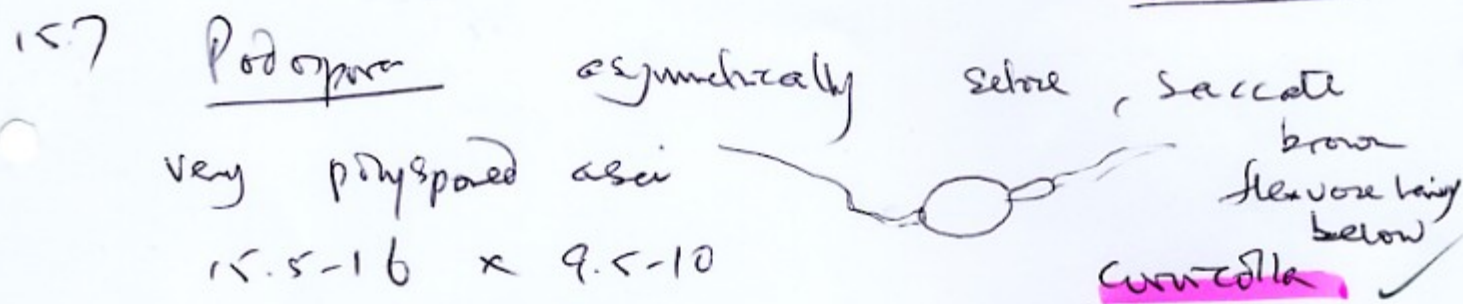 15.7 Podospora asymmetrically setose, saccate
brown
very polyspored asci
flexuose hairs
below
15.5-16 x 9.5-10
curvicolla ✓